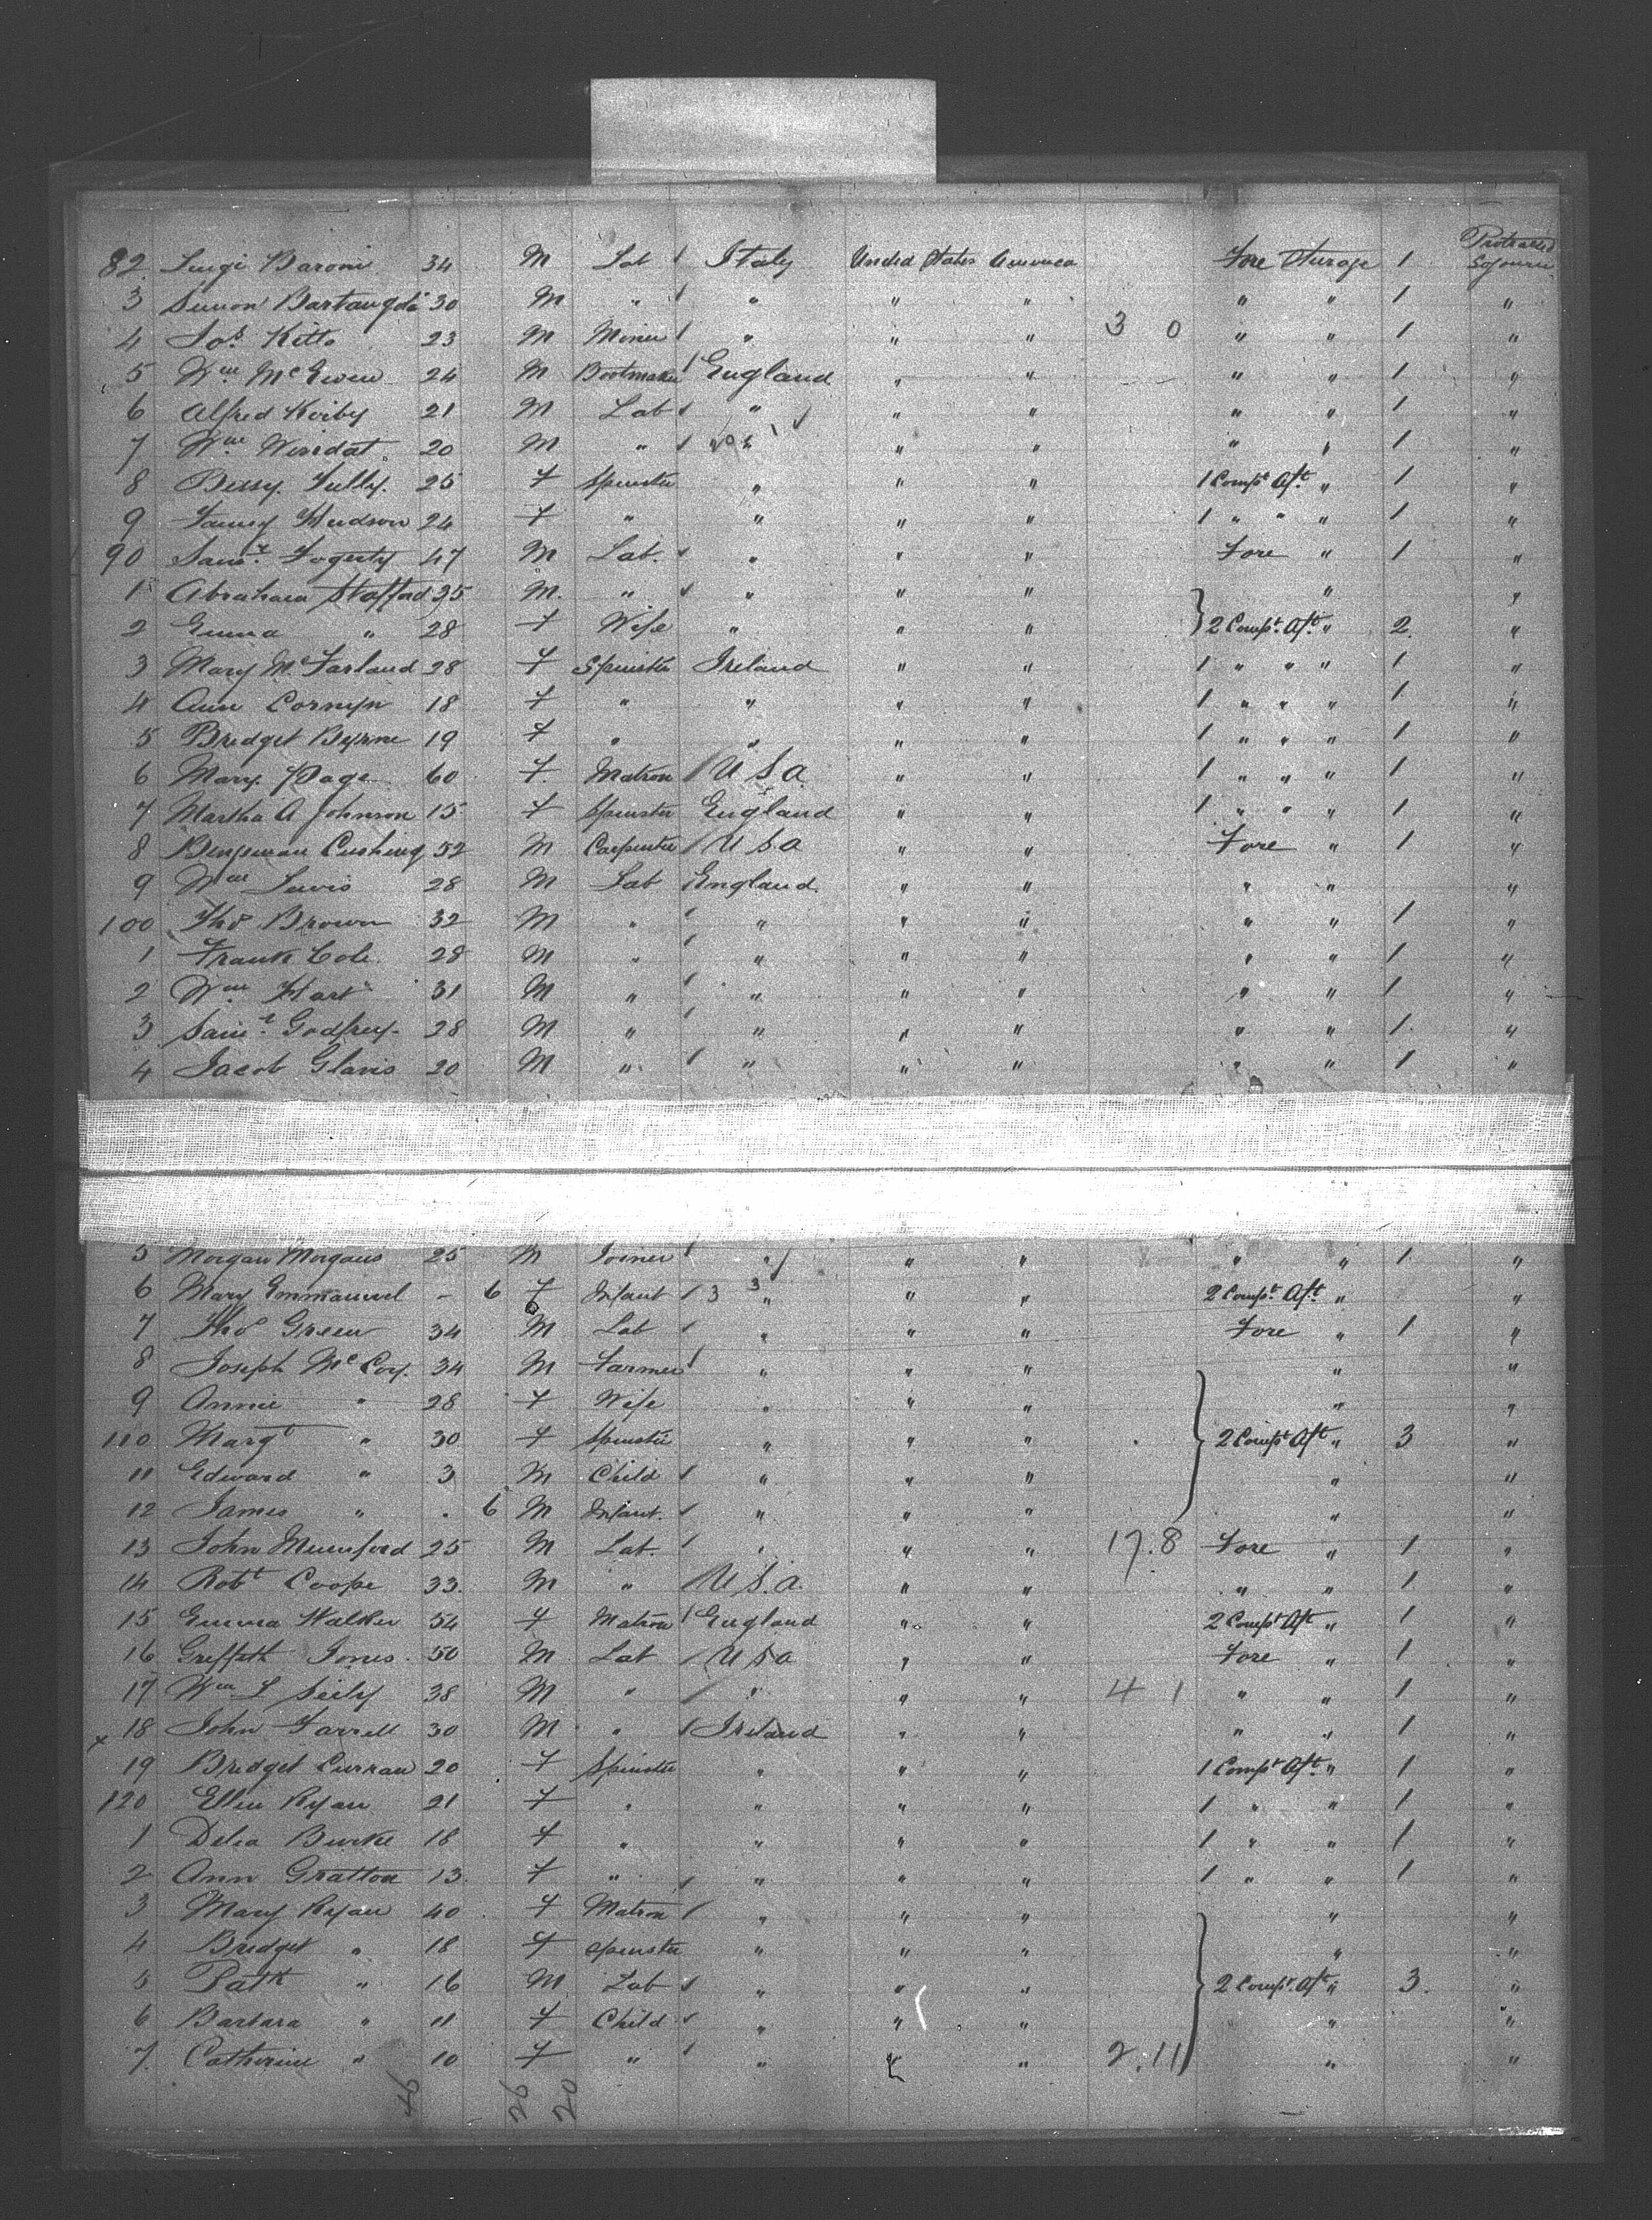 82. Luigi Baroni 34 M Lab Italy United States America Fore Sturage 1 Protracted Sojourn
3 Simon 30 M " " " " " " 1 "
4 Jos. Kitto 23 M Miner " " " 3 0 " " 1 "
5 Wm McEwen 24 M Bootmaker England " " " " 1 "
6 Alfred Kirby 21 M Lab " " " " " 1 "
7 Wm 20 M " " " " " 1 "
8 Bessy Tully 25 F Spinster " " " 1 Compt Aft. " 1 "
9 Fanny Hudson 24 F " " " " 1 " " " 1 "
90 Saml. Fogerty 47 M Lab. " " " Fore " 1 "
1 Abraham Stafford 25 M. " " " " " "
2 Emma " 28 F Wife " " " 2 Compt. Aft. " 2. "
3 Mary McFarland 28 F Spinster Ireland " " 1 " " " 1 "
4 Ann Cornyn 18 F " " " " 1 " " " 1 "
5 Bridget Byrne 19 F " " " " 1 " " " 1 "
6 Mary Page 60 F. Matron U S A " " 1 " " " 1 "
7 Martha A Johnson 15 F Spinster England " " 1 " " " 1 "
8 Benjamin Cushing 52 M Carpenter U S A " " Fore " 1 "
9 Wm Lewis 28 M Lab England " " " " "
100 Thos Brown 32 M " " " " " " 1 "
1 Frank Cole 28 M " " " " " " 1 "
2 Wm Hart 31 M " " " " " " 1 "
3 Saml. Godfrey 28 M " " " " " " 1 "
4 Jacob Glavis 20 M " " " " " " 1 "
5 Morgan Morgans 25 M Joiner " " " " " 1 "
6 Mary Emmanuel - 6 F Infant 3 3 " " " 2 Compt. Aft. " "
7 Thos Green 34 M Lab " " " Fore " 1 "
8 Joseph McCoy. 34 M Farmer " " " " "
9 Annie " 28 F Wife " " " " "
110 Margt " 30 F Spinster " " " 2 Compt Aft " 3 "
11 Edward " 3 M Child " " " " "
12 James " . 6 M Infant. " " " " "
13 John Mumford 25 M Lab. " " " 17.8 Fore " 1 "
14 Robt Coope 33. M " U S. A. " " " " 1 "
15 Emma Walker 54 F Matron England " " 2 Compt Aft " 1 "
16 Griffith Jones 50 M Lab U S A " " Fore " 1 "
17 Wm L 38 M " " " " 4 1 " " 1 "
x 18 John Farrell 30 M " Ireland " " " " 1 "
19 Bridget Curran 20 F Spinster " " " 1 Compt Aft. " 1 "
120 Ellen Ryan 21 F " " " " 1 " " 1 "
1 Delia Burke 18 F " " " " 1 " " 1 "
2 Ann Gratton 13 F " " " " 1 " " 1 "
3 Mary Ryan 40 F Matron " " " " "
4 Bridget " 18 F Spinster " " " " "
5 Patk " 16 M Lab " " " 2 Compt. Aft " 3. "
6 Barbara " 11 F Child " " " " "
7. Catherine " 10 F " " " " 2.11 " "
46 26 20